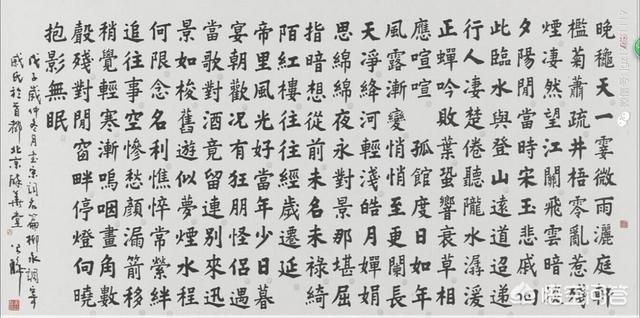 晚穐天一霎微雨灑庭軒
檻菊蕭疏井梧零亂惹殘
煙淒然望江關飛雲暗淡
夕陽閒當時宋玉悲戚向
此臨水與登山遠道迢遞
行人淒楚倦聽隴水潺湲
正蟬吟敗葉蛩響衰草相
應喧喧 孤館度日如年
風露漸變悄悄至更闌長
天淨絳河輕淺皓月嬋娟
思綿綿夜永對景那堪屈
指暗想從前未名未祿綺
陌紅樓往往經歲遷延
帝里風光好當年少日暮
宴朝歡況有狂朋怪侶遇
當歌對酒竟留連別來迅
景如梭舊遊似夢煙水程
何限念名利憔悴常縈絆
追往事空慘愁顏漏箭移
稍覺輕寒漸嗚咽畫角數
聲殘對閒窗畔停燈向曉
抱影無眠
戊子歲仲冬月書宋詞長篇柳永調寄
戚氏於首都北京
悟空问答